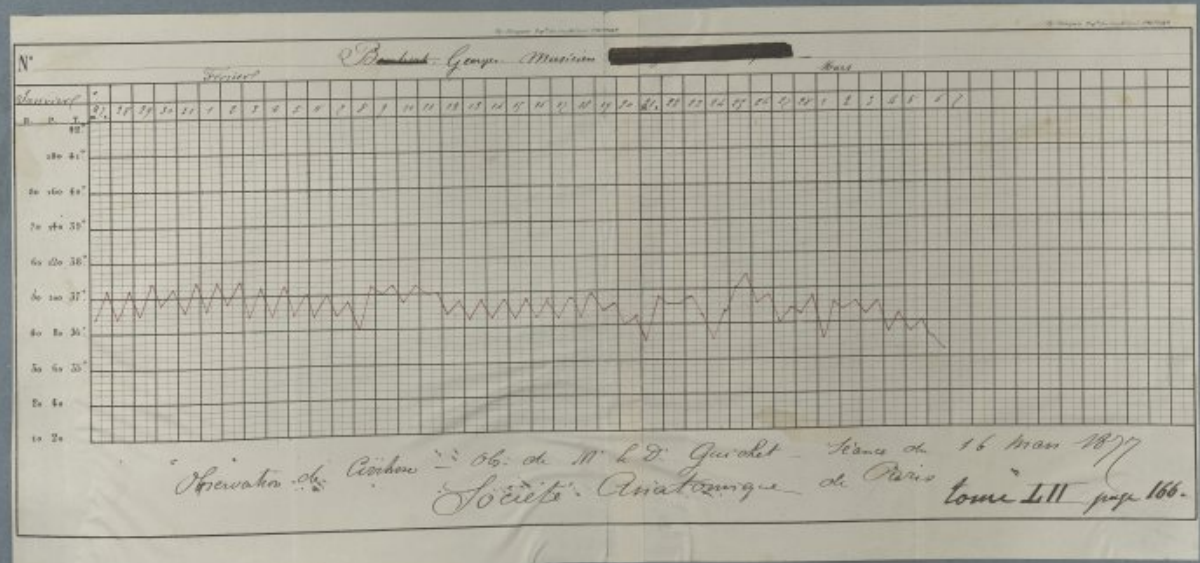 N°
Georges Musicien
Janvier Février Mars
27 28 29 30 31 1 2 3 4 5 6 7 8 9 10 11 12 13 14 15 16 17 18 19 20 21 22 23 24 25 26 27 28 1 2 3 4 5 6 7
R. P. T.
42°
180 41°
80 160 40°
70 140 39°
60 120 38°
50 100 37°
40 80 36°
30 60 35°
20 40
10 20
"Observation de Cirrhose" Obs. de Mr le Dr Guichet - Séance du 16 mars 1877
Société Anatomique de Paris tome LII page 166.